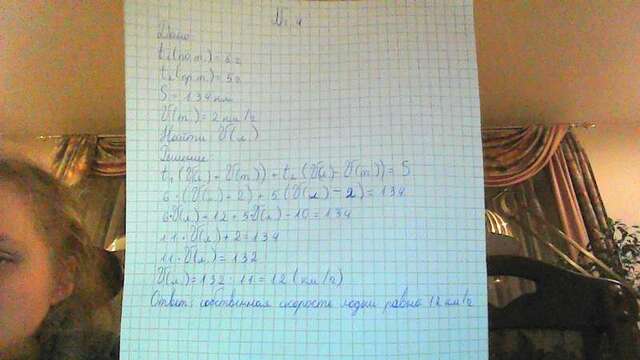 № 4
Дано:
t₁(по т.) = 6 ч
t₂(пр. т.) = 5 ч
S = 134 км
V(т.) = 2 км/ч
Найти V(л.)
Решение:
t₁(V(л.) + V(т.)) + t₂(V(л.) - V(т.)) = S
6·(V(л.) + 2) + 5(V(л.) - 2) = 134
6·V(л.) + 12 + 5V(л.) - 10 = 134
11·V(л.) + 2 = 134
11·V(л.) = 132
V(л.) = 132 : 11 = 12 (км/ч)
Ответ: собственная скорость лодки равна 12 км/ч